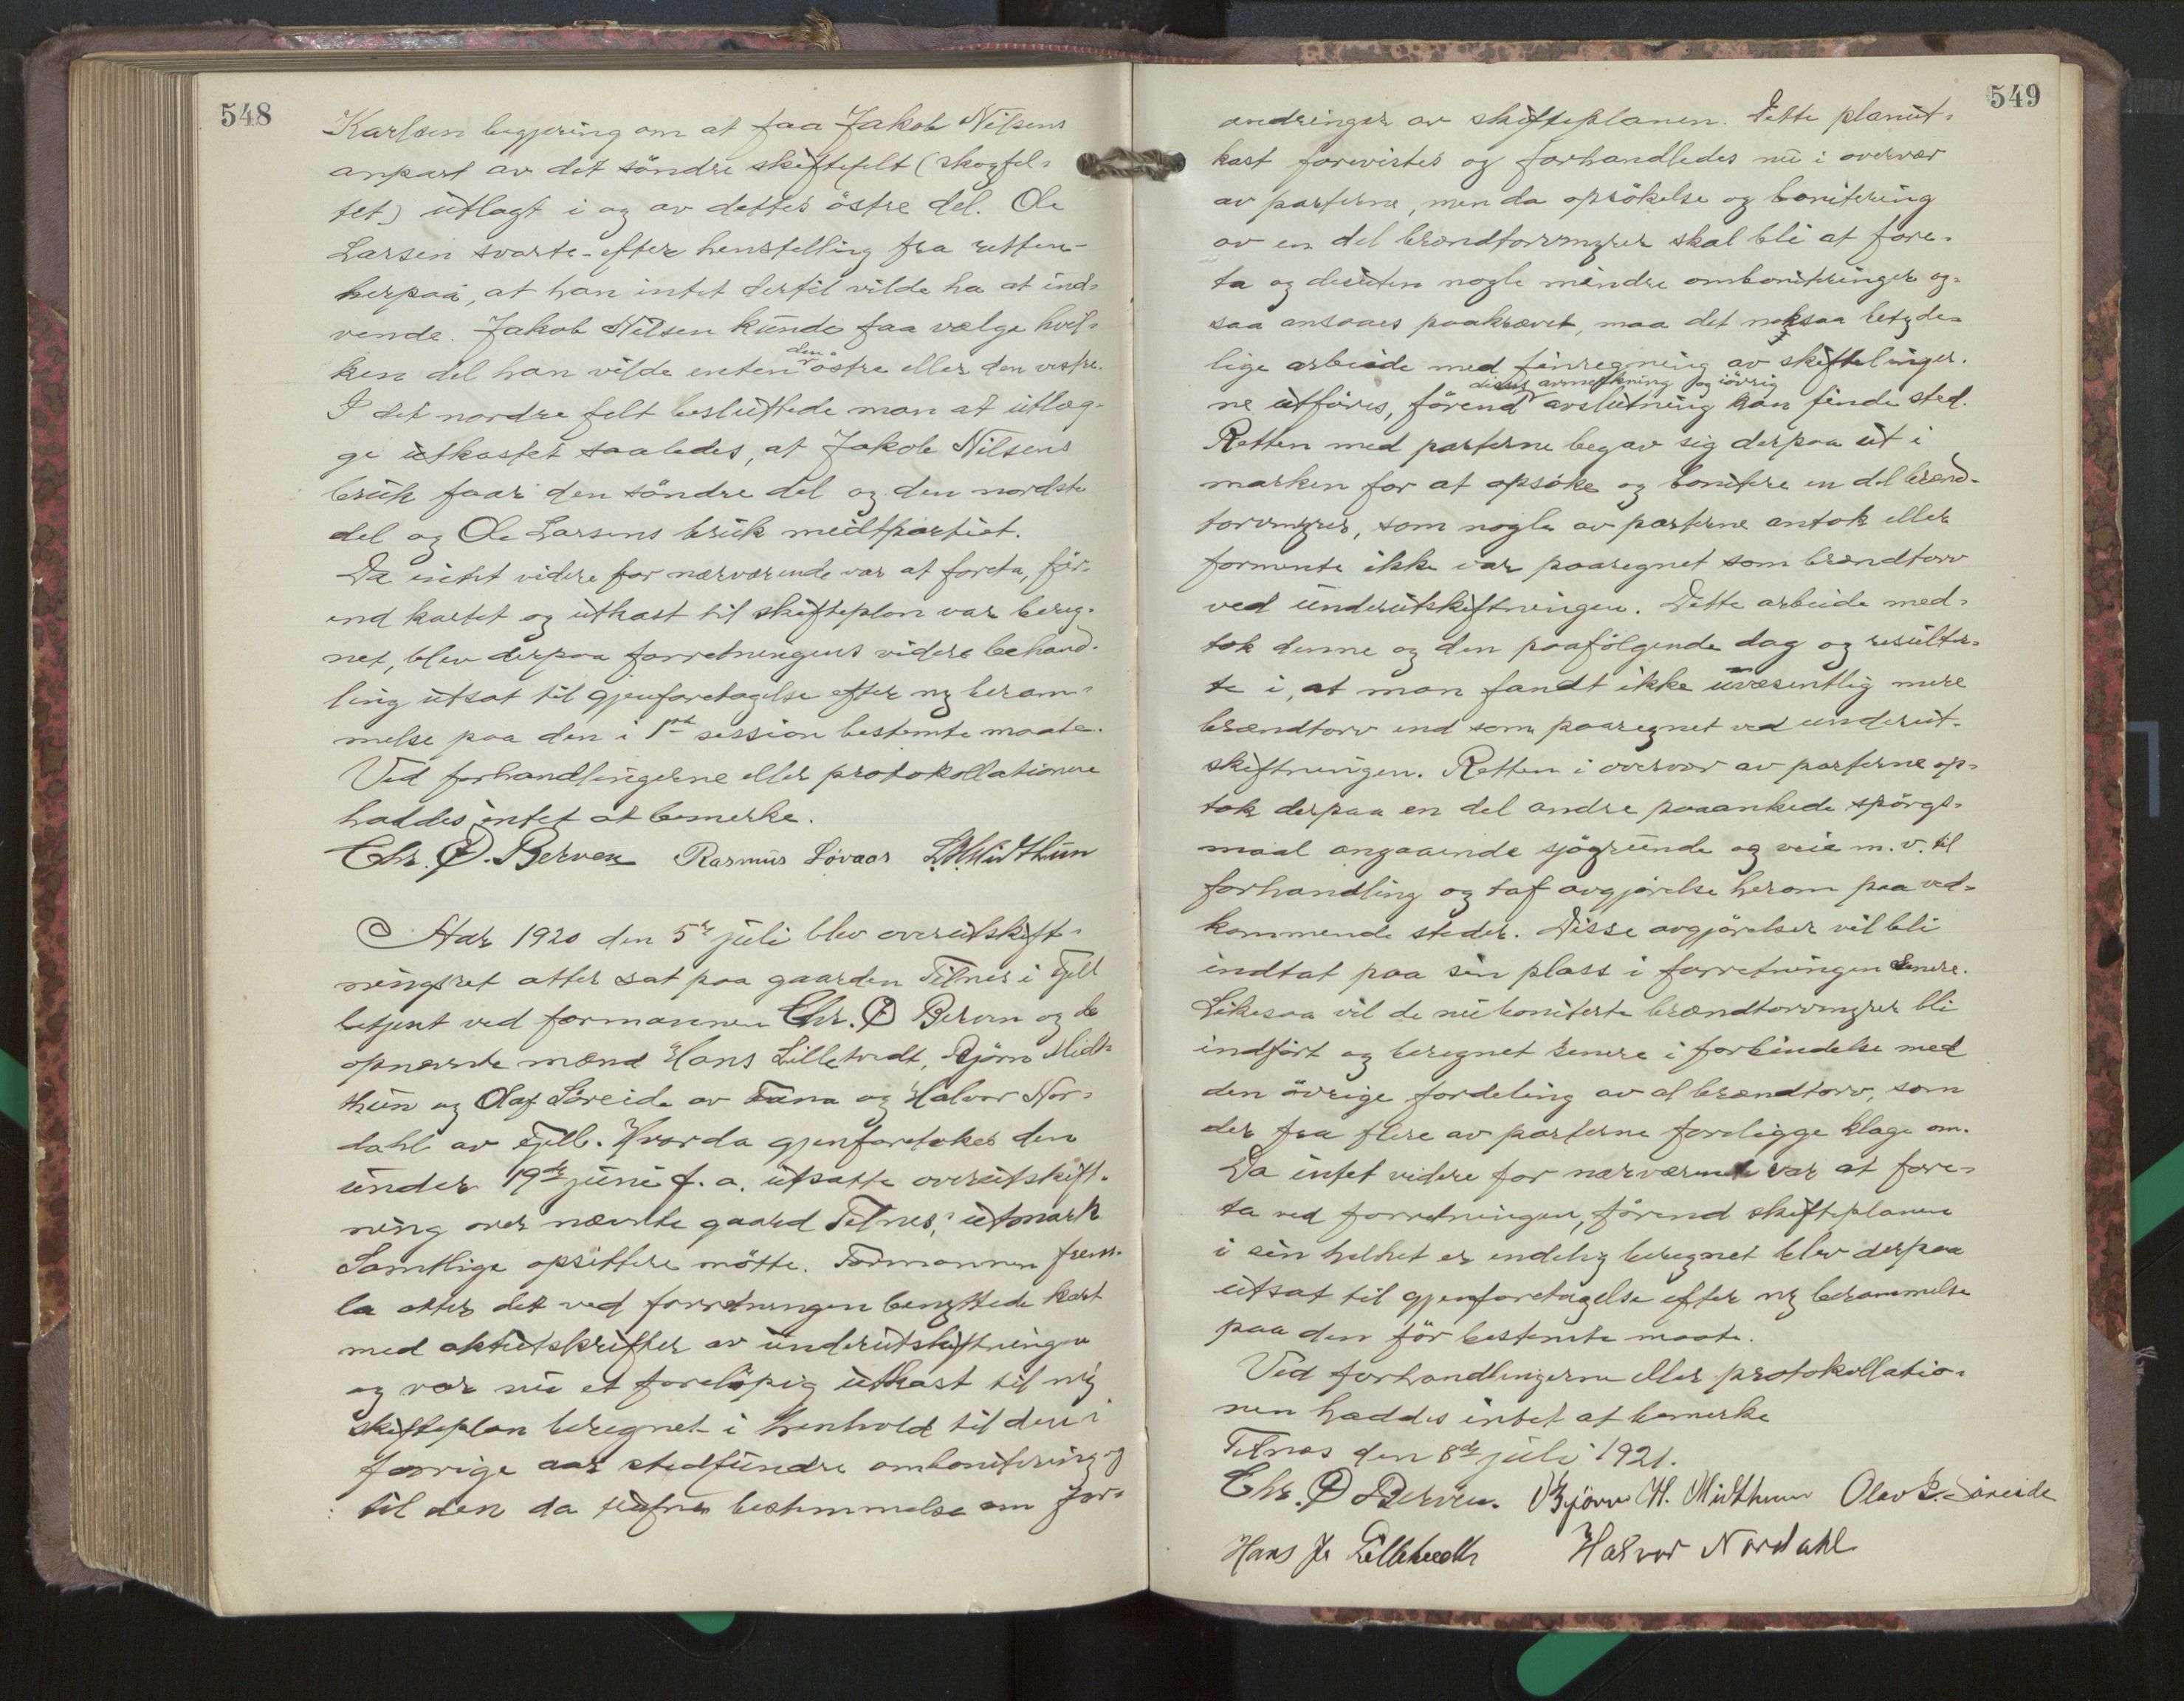 548
Karlsen begjæring om at faa Jakob Nilsens
anpart av det söndre skiftefelt (skogfel-
tet) utlagt i og av dettes östre del. Ole
Larsen svarte - efter henstelling fra retten -
herpaa, at han intet dertil vilde ha at ind-
vende. Jakob Nilsen kunde faa vælge hvil-
ken del han vilde enten den östre eller den vestre.
I det nordre felt besluttede man at utlæg-
ge utkastet saaledes, at Jakob Nilsens
bruk faar den söndre del og den nordste
del og Ole Larsens bruk midtpartiet.
Da intet videre for nærværende var at foreta, för-
end kartet og utkast til skifteplan var bereg-
net, blev derpaa forretningens videre behand-
ling utsat til gjenforetagelse efter ny beram-
melse paa den i 1ste session bestemte maate.
Ved forhandlingerne eller protokollationen
haddes intet at bemerke.
Chr. Ø. Berven Rasmus Lövaas L. H. Midthun
Aar 1920 den 5te juli blev overutskift-
ningsret atter sat paa gaarden Tilnes i Fjell
betjent ved formannen Chr. Ø Berven og de
opnævnte mænd Hans Lilletvedt, Björn Midt-
thun og Olaf Söreide av Fana og Halvor Nor-
dahl av Fjell. Hvorda gjenforetokes den
under 19de juni f. a. utsatte overutskift-
ning over nævnte gaard Tilnes, utmark
Samtlige opsittere mötte. Formannen frem-
la atter det ved forretningen benyttede kart
med aktutskrifter av underutskiftningen
og var nu et forelöpig utkast til ny
skifteplan beregnet i henhold til den i
forrige aar stedfundne ombonitering og
til den da trufne bestemmelse om for-
549
andringer av skifteplanen. Dette planut-
kast forevistes og forhandledes nu i overvær
av parterne, men da opsökelse og bonitering
av en del brændtorvmyrer skal bli at fore-
ta og desuten nogle mindre omboniteringer og-
saa ansaaes paakrævet, maa det noksaa betyde-
lige arbeide med finregning av skiftelinjer-
ne utföres, förend disses avmerkning og iövrig avslutning kan finde sted.
Retten med parterne begav sig derpaa ut i
marken for at opsöke og bonitere en del brænd-
torvmyrer, som nogle av parterne antok eller
formente ikke var paaregnet som brændtorv
ved underutskiftningen. Dette arbeide med-
tok denne og den paafölgende dag og resulter-
te i, at man fandt ikke uvæsentlig mere
brændtorv end som paaregnet ved underut-
skiftningen. Retten i overvær av parterne op-
tok derpaa en del andre paaankede spörgs-
maal angaaende sjögrunde og veie m. v. til
forhandling og tok avgjörelse herom paa ved-
kommende steder. Disse avgjörelser vil bli
indtat paa sin plass i forretningen senere.
Likesaa vil de nu boniterte brændtorvmyrer bli
indfört og beregnet senere i forbindelse med
den övrige fordeling av al brændtorv, som
der fra flere av parterne foreligge klage om.
Da intet videre for nærværende var at fore-
ta ved forretningen, förend skifteplanen
i sin helhet er endelig beregnet blev derpaa
utsat til gjenforetagelse efter ny berammelse
paa den för bestemte maate.
Ved forhandlingerne eller protokollatio-
nen haddes intet at bemerke
Tilnes den 8de juli 1921.
Chr. Ø Berven. Björn H. Midthun Olav L. Söreide
Hans J. Lilletvedt Halvor Nordahl